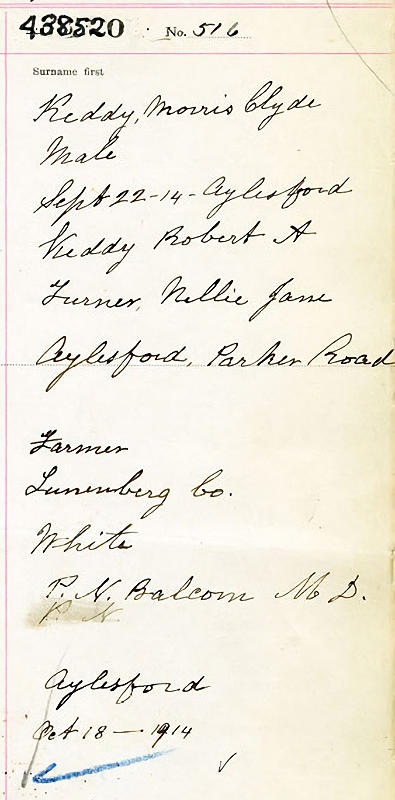 438520 No. 516
Surname first
Keddy, Morris Clyde
Male
Sept 22-14-Aylesford
Keddy Robert A
Turner, Nellie Jane
Aylesford, Parker Road
Farmer
Lunenberg Co.
White
P. N. Balcom M D.
P. N
Aylesford
Oct 18 — 1914